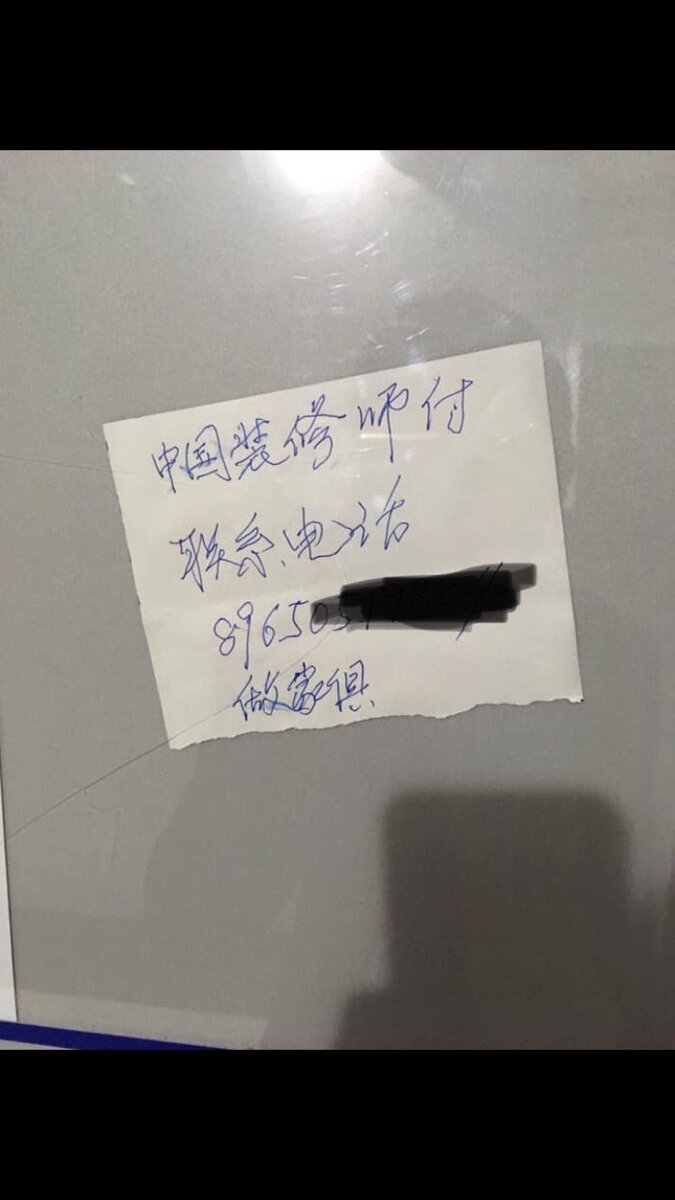 中国装修师付
联系电话
89650
做家俱